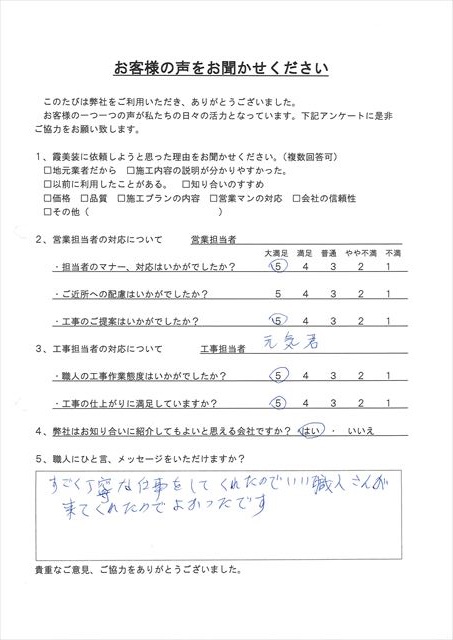 お客様の声をお聞かせください
このたびは弊社をご利用いただき、ありがとうございました。
お客様の一つ一つの声が私たちの日々の活力となっています。下記アンケートに是非
ご協力をお願い致します。
1、霞美装に依頼しようと思った理由をお聞かせください。（複数回答可）
□地元業者だから　□施工内容の説明が分かりやすかった。
□以前に利用したことがある。　□知り合いのすすめ
□価格　□品質　□施工プランの内容　□営業マンの対応　□会社の信頼性
□その他（　　　　　　　　　　　）
2、営業担当者の対応について　　営業担当者
大満足　満足　普通　やや不満　不満
・担当者のマナー、対応はいかがでしたか？　5　4　3　2　1
・ご近所への配慮はいかがでしたか？　5　4　3　2　1
・工事のご提案はいかがでしたか？　5　4　3　2　1
3、工事担当者の対応について　　工事担当者　元気君
・職人の工事作業態度はいかがでしたか？　5　4　3　2　1
・工事の仕上がりに満足していますか？　5　4　3　2　1
4、弊社はお知り合いに紹介してもよいと思える会社ですか？　はい　・　いいえ
5、職人にひと言、メッセージをいただけますか？
すごく丁寧な仕事をしてくれたのでいい職人さんが
来てくれたのでよかったです
貴重なご意見、ご協力をありがとうございました。